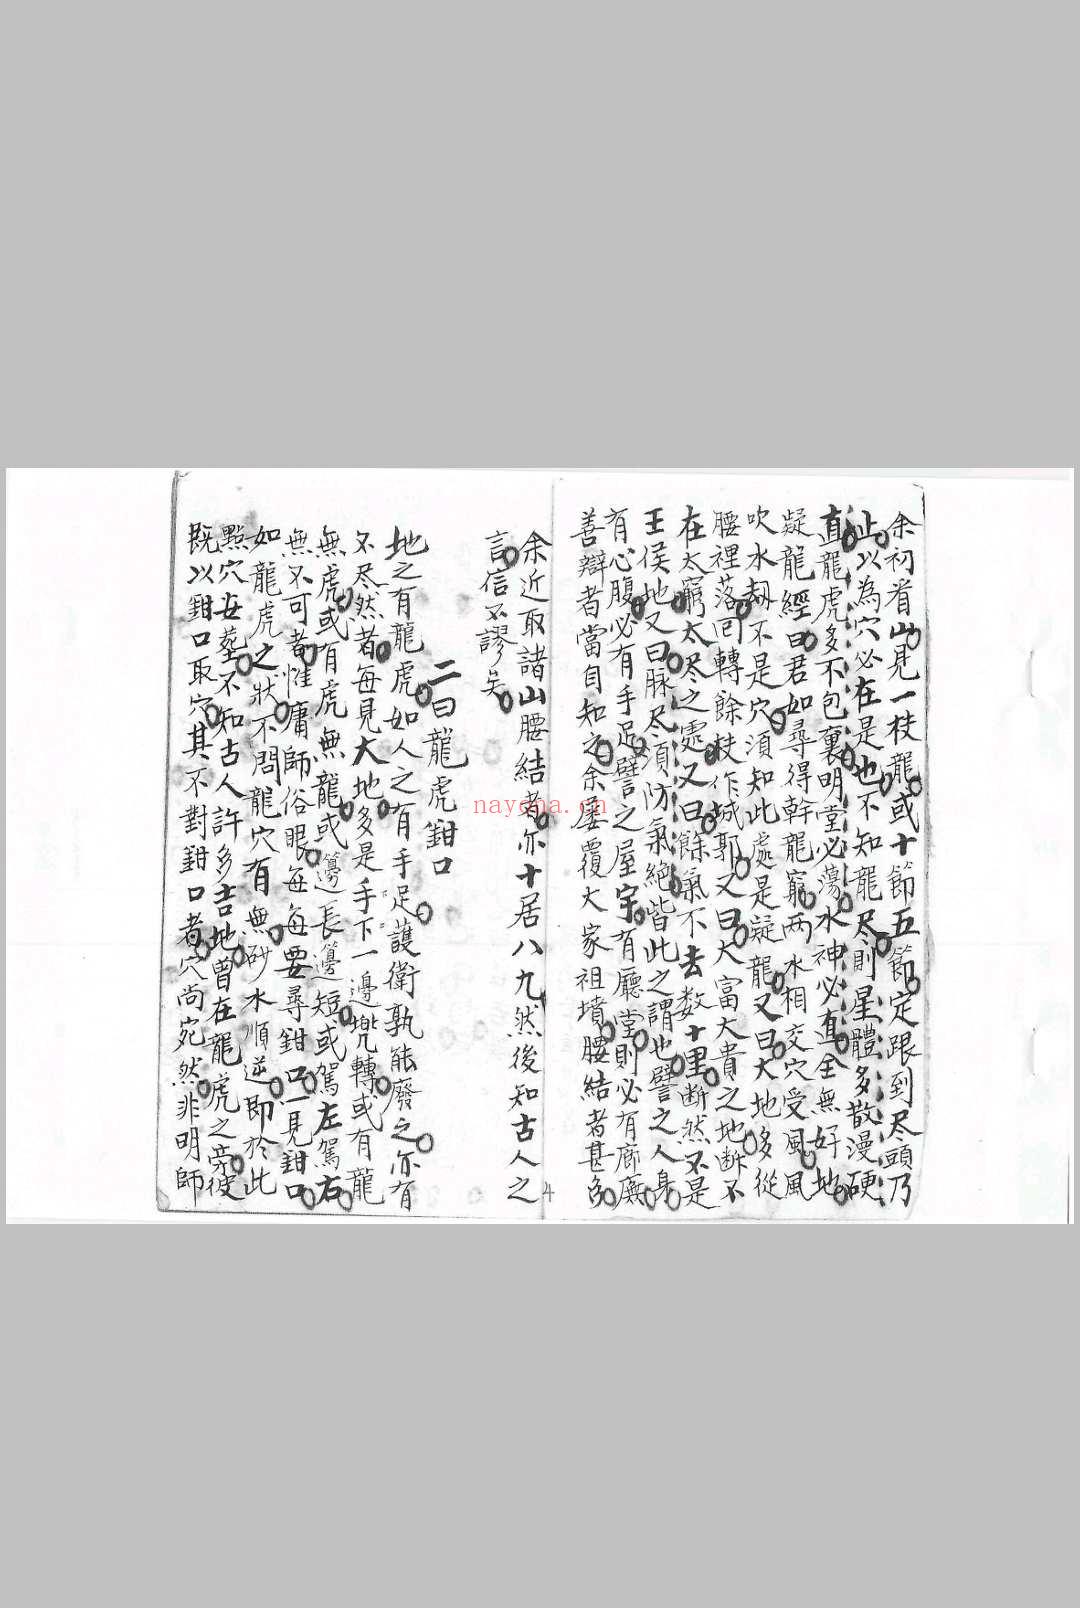 余初看山見一枝龍或十節五節定跟到尽頭乃
止以為穴必在是也不知龍尽則星體多散漫硬
直龍虎多不包裹明堂必蕩水神必直全無好地
疑龍經曰君如尋得幹龍窮两水相交穴受風風
吹水刼不是穴須知此處是疑龍又曰大地多從
腰裡落回轉餘枝作城郭又曰大富大貴之地断不
在太窮太尽之處又曰餘氣不去数十里断然不是
王侯地又曰脉尽須防氣絶皆此之謂也譬之人身
有心腹必有手足譬之屋宇有廳堂則必有廊廡
善辯者當自知之余屡覆大家祖墳腰結者甚多
余近取諸山腰結者亦十居八九然後知古人之
言信不謬矣
二曰龍虎鉗口
地之有龍虎如人之有手足護衛孰能廢之亦有
不尽然者每見大地多是手下一邊兠轉或有龍
無虎或有虎無龍或邊長邊短或駕左駕右
無不可者惟庸師俗眼每每要尋鉗口一見鉗口
如龍虎之狀不問龍穴有無砂水順逆即於此
點穴安葬不知古人許多吉地曽在龍虎之旁彼
既以鉗口取穴其不對鉗口者穴尚宛然非明師
4
nayona.cn